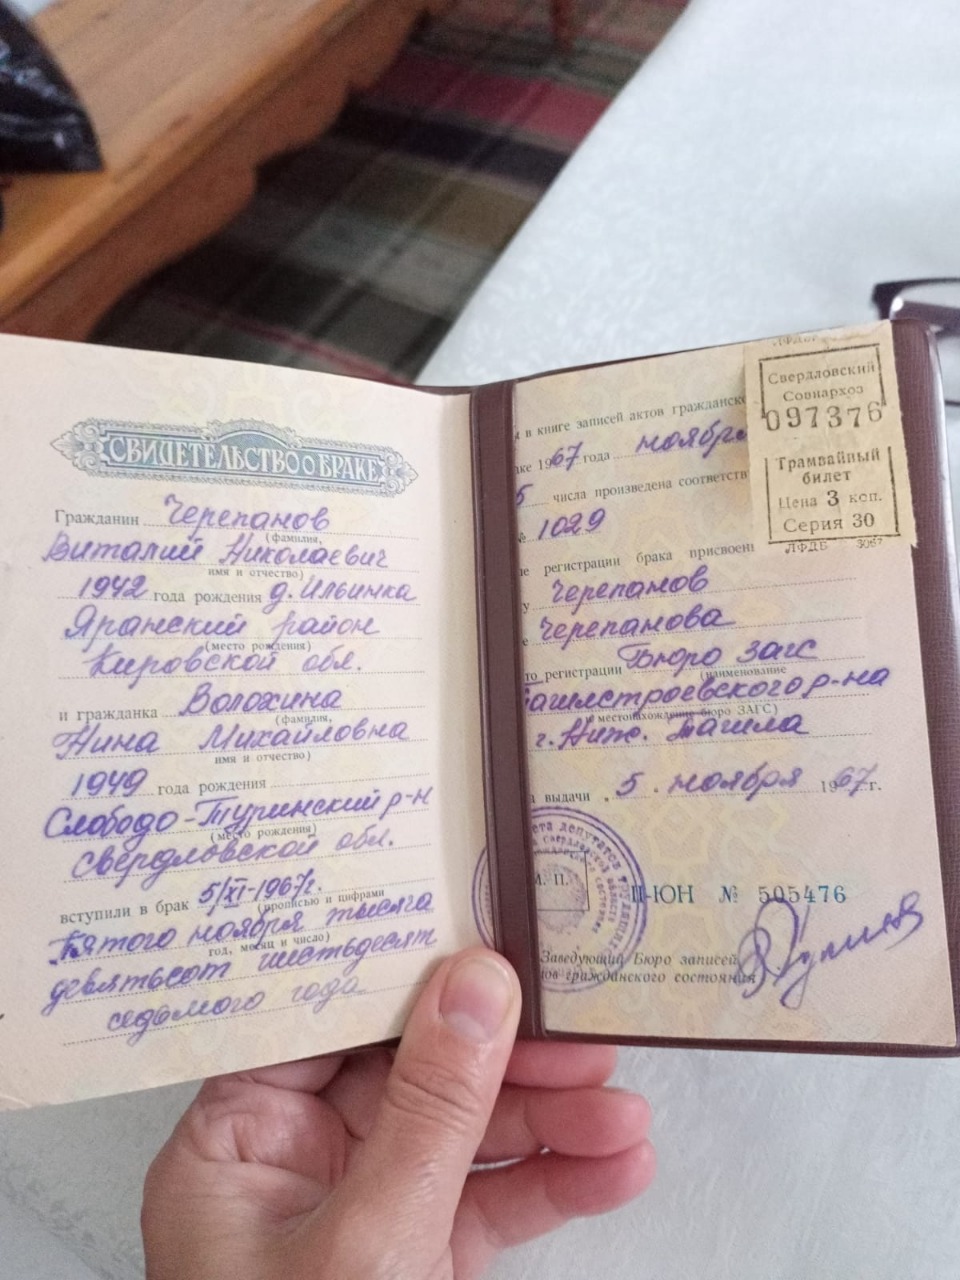 СВИДЕТЕЛЬСТВО О БРАКЕ
Гражданин Черепанов
(фамилия,
Виталий Николаевич
имя и отчество)
1942 года рождения д. Ильинка
Яранский район
(место рождения)
Кировской обл.
и гражданка Волохина
(фамилия,
Нина Михайловна
имя и отчество)
1949 года рождения
Слободо-Туринский р-н
(место рождения)
Свердловской обл.
вступили в брак 5/XI-1967г.
(прописью и цифрами
Пятого ноября тысяча
год, месяц и число)
девятьсот шестьдесят
седьмого года
в книге записей актов гражданско
ке 1967 года ноября
5 числа произведена соответств
№ 1029
е регистрации брака присвоен
у Черепанов
е Черепанова
то регистрации Бюро загс
(наименование
Тагилстроевского р-на
и местонахождение бюро ЗАГС)
г. Ниж. Тагила
выдачи 5 ноября 1967 г.
М. П.
II-ЮН № 505476
Заведующий Бюро записей
тов гражданского состояния
Свердловский
Совнархоз
097376
Трамвайный
билет
Цена 3 коп.
Серия 30
ЛФДБ